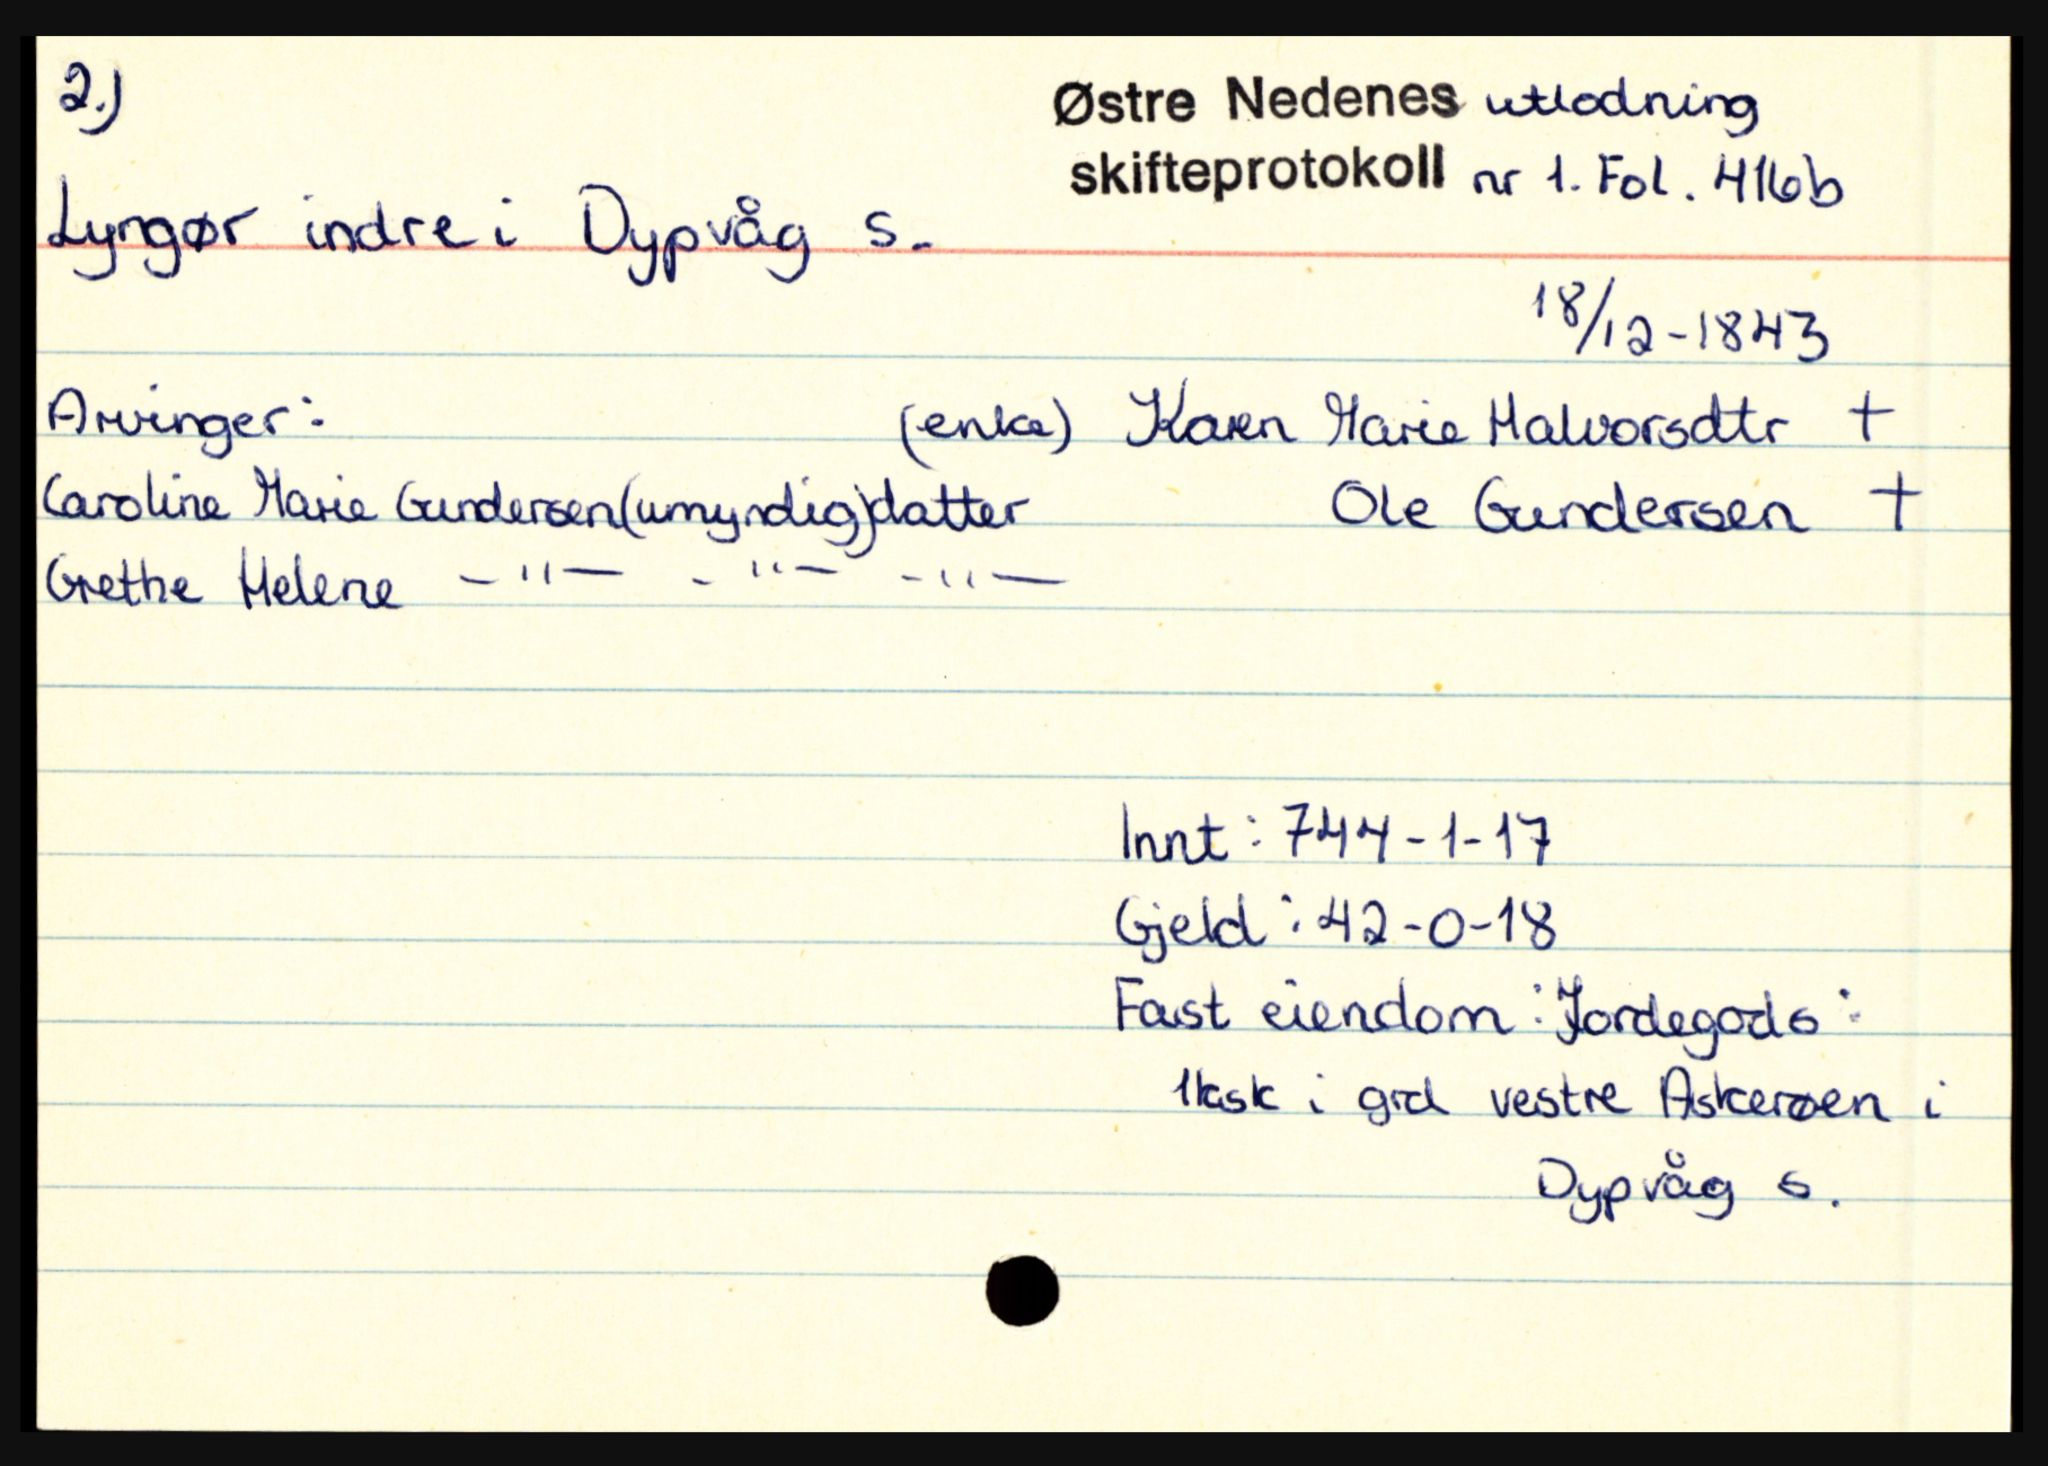 2.)
Østre Nedenes utlodning
skifteprotokoll nr 1. Fol. 416b
Lyngør indre i Dypvåg s.
18/12-1843
Arvinger: (enke) Karen Marie Halvorsdtr +
Caroline Marie Gundersen (umyndig) datter Ole Gundersen +
Grethe Helene -"- -"- -"-
Innt: 744-1-17
Gjeld: 42-0-18
Fast eiendom: Jordegods:
1ksk i grd vestre Askerøen i
Dypvåg s.